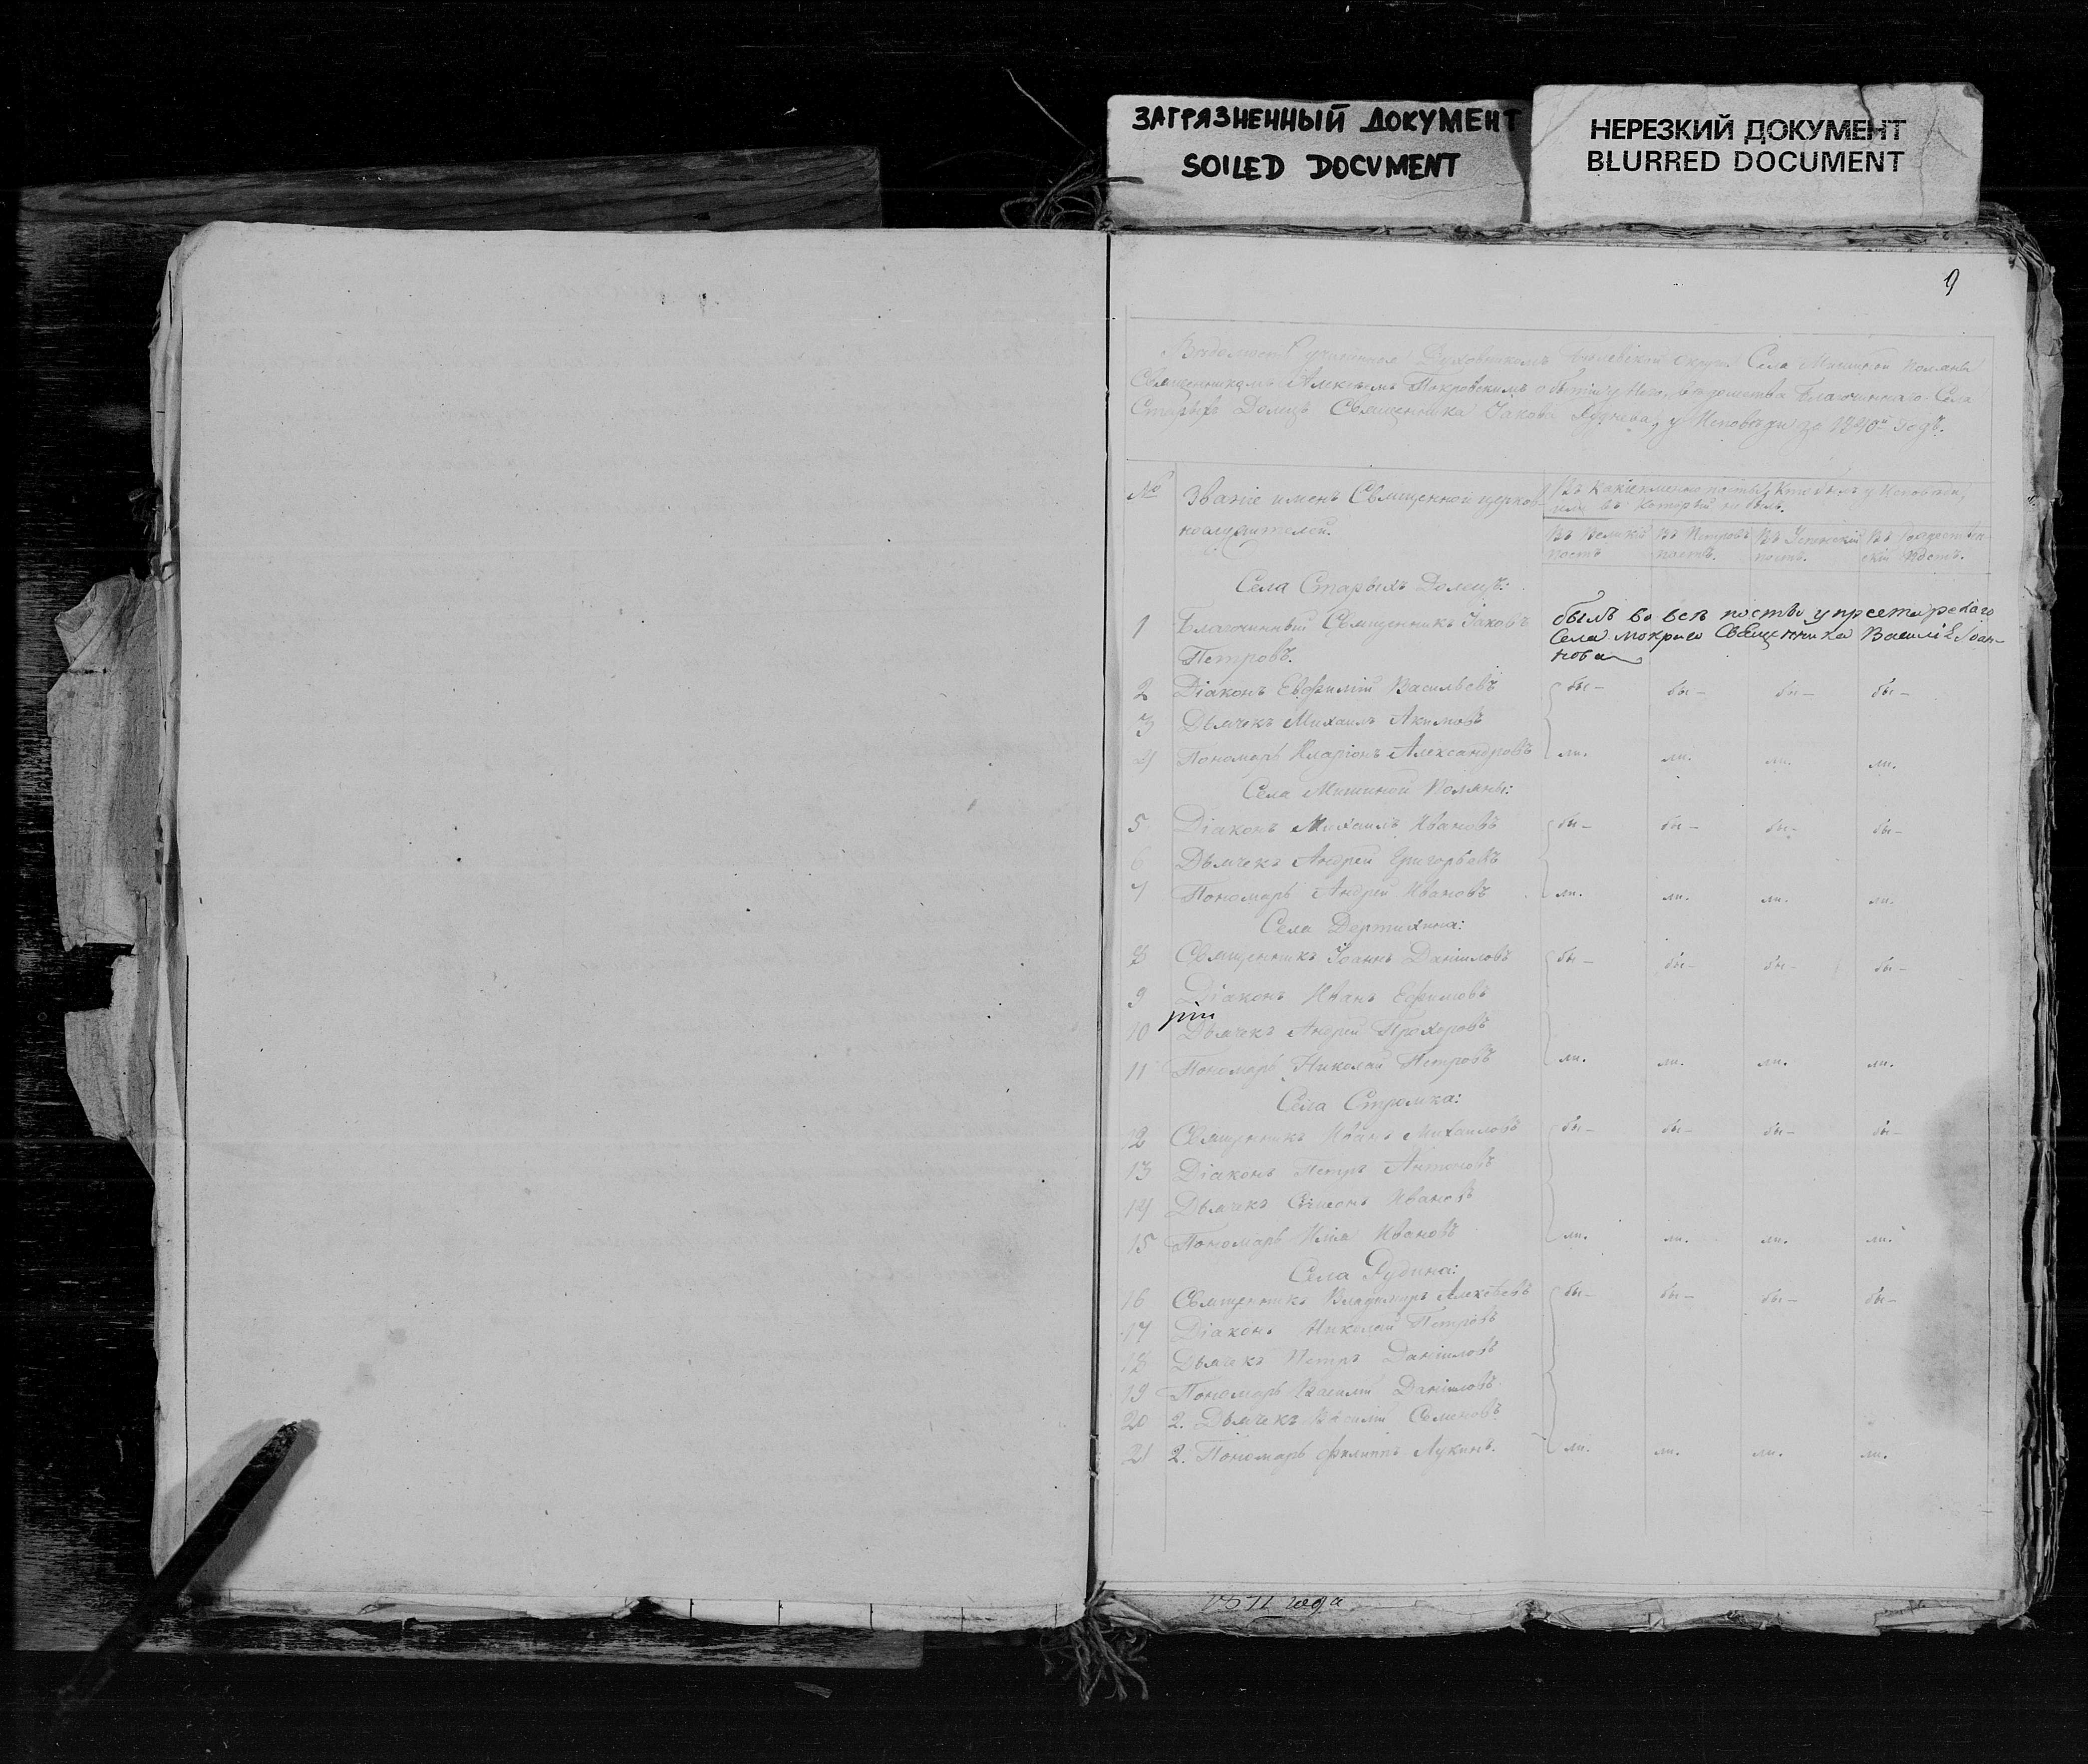 ЗАГРЯЗНЕННЫЙ ДОКУМЕНТ
SOILED DOCUMENT
НЕРЕЗКИЙ ДОКУМЕНТ
BLURRED DOCUMENT
9
Ведомость учиненная Духовникомъ округи Села Мишиной Поляны
Священникомъ Алексіемъ Покровскимъ о бытіи у Него, ведомства Благочиннаго Села
Старыхъ Долецъ Священника Іакова Руднева, у Исповѣди за 1840й годъ.
№
Званіе именъ Священной церков-
нослужителей.
Въ какіе именно посты, Кто былъ у Исповѣди,
или въ который не былъ.
Въ Великій
постъ
Въ Петровъ
постъ.
Въ Успенскій
постъ.
Въ Рождествен-
скій постъ.
Села Старыхъ Долецъ:
1 Благочинный Священникъ Іаковъ
Петровъ.
былъ во все посты у
Села мокраго Священника Василія Іоан-
нова
2 Діаконъ Евфимій Васильевъ бы- бы- бы- бы-
3 Дьячекъ Михаилъ Акимовъ
4 Пономарь Иларіонъ Александровъ ли. ли. ли. ли.
Села Мишиной Поляны:
5 Діаконъ Михаилъ Ивановъ бы- бы- бы- бы-
6 Дьячекъ Андрей Григорьевъ
7 Пономарь Андрей Ивановъ ли. ли. ли. ли.
Села Дертихина:
8 Священникъ Іоаннъ Даніиловъ бы- бы- бы- бы-
9 Діаконъ Иванъ Ефимовъ
10 Дьячекъ Андрей Прохоровъ
11 Пономарь Николай Петровъ ли. ли. ли. ли.
Села Стромка:
12 Священникъ Иванъ Михаиловъ бы- бы- бы- бы-
13 Діаконъ Петръ Антоновъ
14 Дьячекъ Симеонъ Ивановъ
15 Пономарь Илія Ивановъ ли. ли. ли. ли.
Села Рудина:
16 Священникъ Владимиръ Алексѣевъ бы- бы- бы- бы-
17 Діаконъ Николай Петровъ
18 Дьячекъ Петръ Даніиловъ
19 Пономарь Василій Даніиловъ
20 2. Дьячекъ Василій Семеновъ
21 2. Пономарь Филиппъ Лукинъ. ли. ли. ли. ли.
года